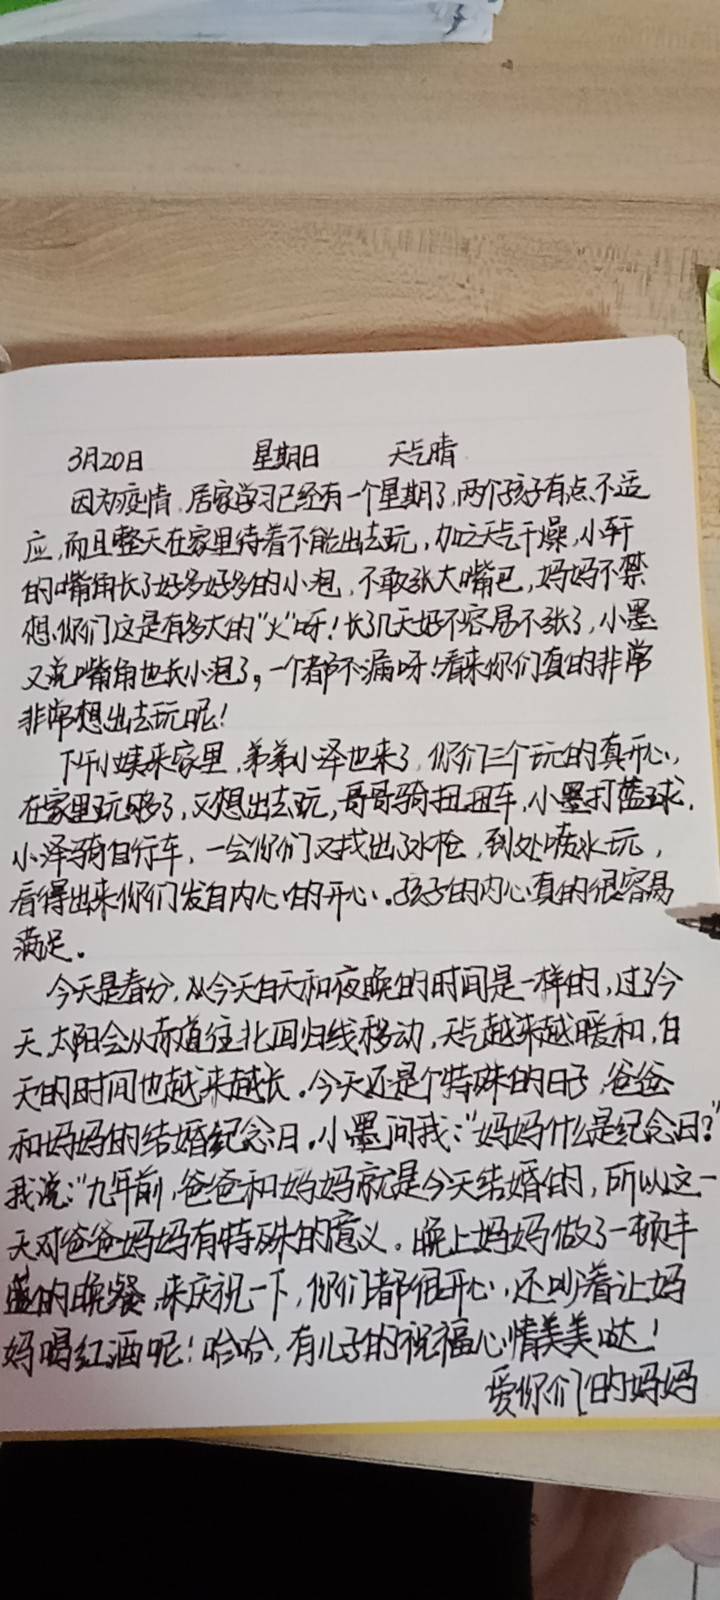 3月20日 星期日 天气晴
因为疫情,居家学习已经有一个星期了,两个孩子有点不适
应,而且整天在家里待着不能出去玩,加之天气干燥,小轩
的嘴角长了好多好多的小泡,不敢张大嘴巴,妈妈不禁
想,你们这是有多大的“火”呀!长了几天好不容易不张了,小墨
又说嘴角也长小泡了,一个都不漏呀!看来你们真的非常
非常想出去玩呢!
下午小姨来家里,弟弟小泽也来了,你们三个玩的真开心,
在家里玩够了,又想出去玩,哥哥骑扭扭车,小墨打蓝球,
小泽骑自行车,一会你们又找出了水枪,到处喷水玩,
看得出来你们发自内心的开心。孩子的内心真的很容易
满足。
今天是春分,从今天白天和夜晚的时间是一样的,过了今
天,太阳会从赤道往北回归线移动,天气越来越暖和,白
天的时间也越来越长。今天还是个特殊的日子,爸爸
和妈妈的结婚纪念日。小墨问我:“妈妈什么是纪念日?”
我说:“九年前,爸爸和妈妈就是今天结婚的,所以这一
天对爸爸妈妈有特殊的意义。晚上妈妈做了一顿丰
盛的晚餐,来庆祝一下,你们都很开心,还吵着让妈
妈喝红酒呢!哈哈,有儿子的祝福心情美美哒!
爱你们的妈妈